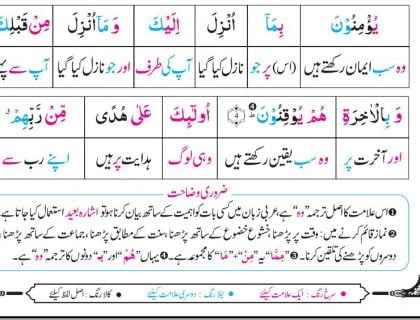 يُؤْمِنُوْنَ بِمَآ اُنْزِلَ اِلَيْكَ وَ مَآ اُنْزِلَ مِنْ قَبْلِكَ
وہ سب ایمان رکھتے ہیں (اس) پر جو نازل کیا گیا آپ کی طرف اور جو نازل کیا گیا آپ سے پہ
وَ بِالْاٰخِرَةِ هُمْ يُوْقِنُوْنَ ۴ اُولٰٓئِكَ عَلٰى هُدًى مِّنْ رَّبِّهِمْ
اور آخرت پر وہ سب یقین رکھتے ہیں وہی لوگ ہدایت پر ہیں اپنے رب سے
ضروری وضاحت
❶ اس علامت کا اصل ترجمہ "وہ" ہے، عربی زبان میں کسی بات کو اہمیت کے ساتھ بیان کرنا ہو تو اشارہ بعید استعمال کیا جاتا ہے۔
❷ نماز قائم کرنے میں: وقت پر پڑھنا، خشوع خضوع کے ساتھ پڑھنا، سنت کے مطابق پڑھنا، جماعت کے ساتھ پڑھنا،
دوسروں کو پڑھنے کی تلقین کرنا۔ ❸ "مِمَّا" یہ "مِنْ" + "مَا" کا مجموعہ ہے۔ ❹ یہاں "هُمْ" اور "یـ" دونوں کا ترجمہ "وہ" ہے۔
سرخ رنگ: ایک علامت کیلئے نیلا رنگ: دوسری علامت کیلئے کالا رنگ: اصل لفظ کیلئے